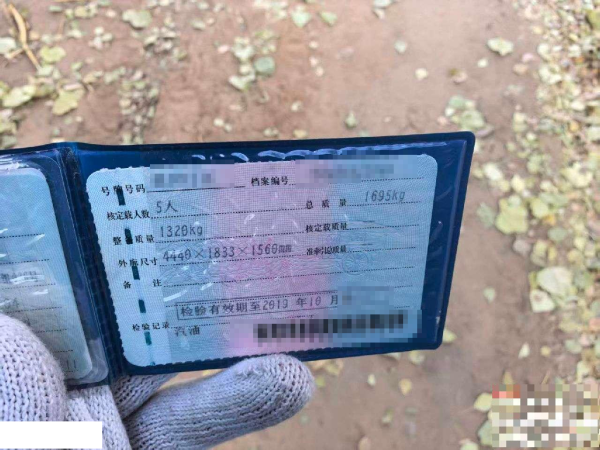 号牌号码 档案编号
核定载人数 5人 总质量 1695kg
整备质量 1320kg 核定载质量
外廓尺寸 4440×1833×1560mm 准牵引总质量
备注
检验有效期至2019年10月
检验记录 汽油